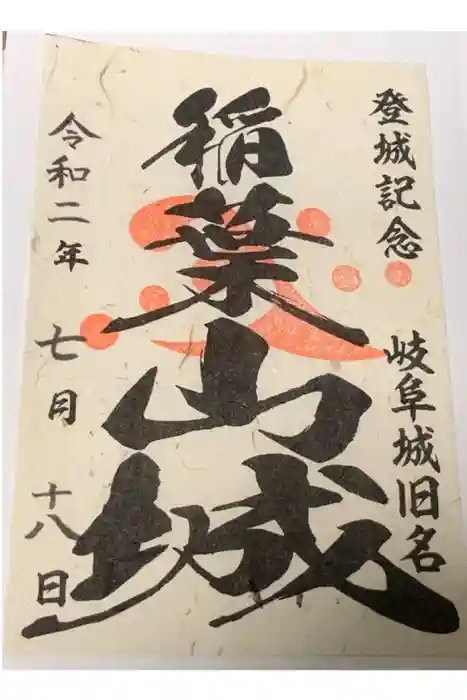 登城記念
岐阜城旧名
稲葉山城
令和二年
七月
十八日